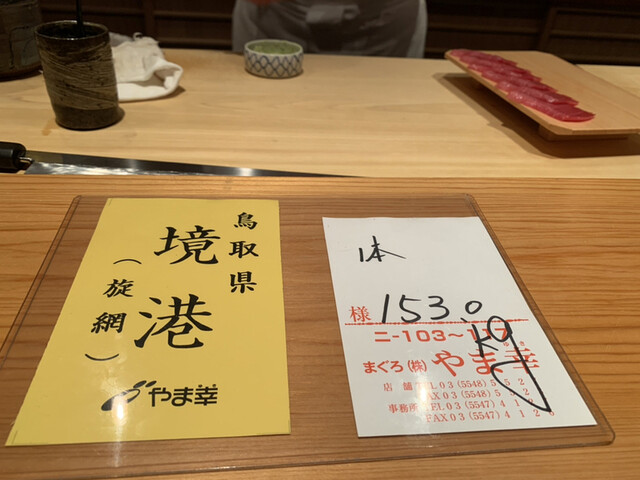 鳥取県
境港
(旋網)
やま幸
1本
様 153.0
kg
ニ-103~117
まぐろ(株)やま幸
店舗 TEL 03 (5548) 5
FAX 03 (5548) 5
事務所 TEL 03 (5547) 4
FAX 03 (5547) 4